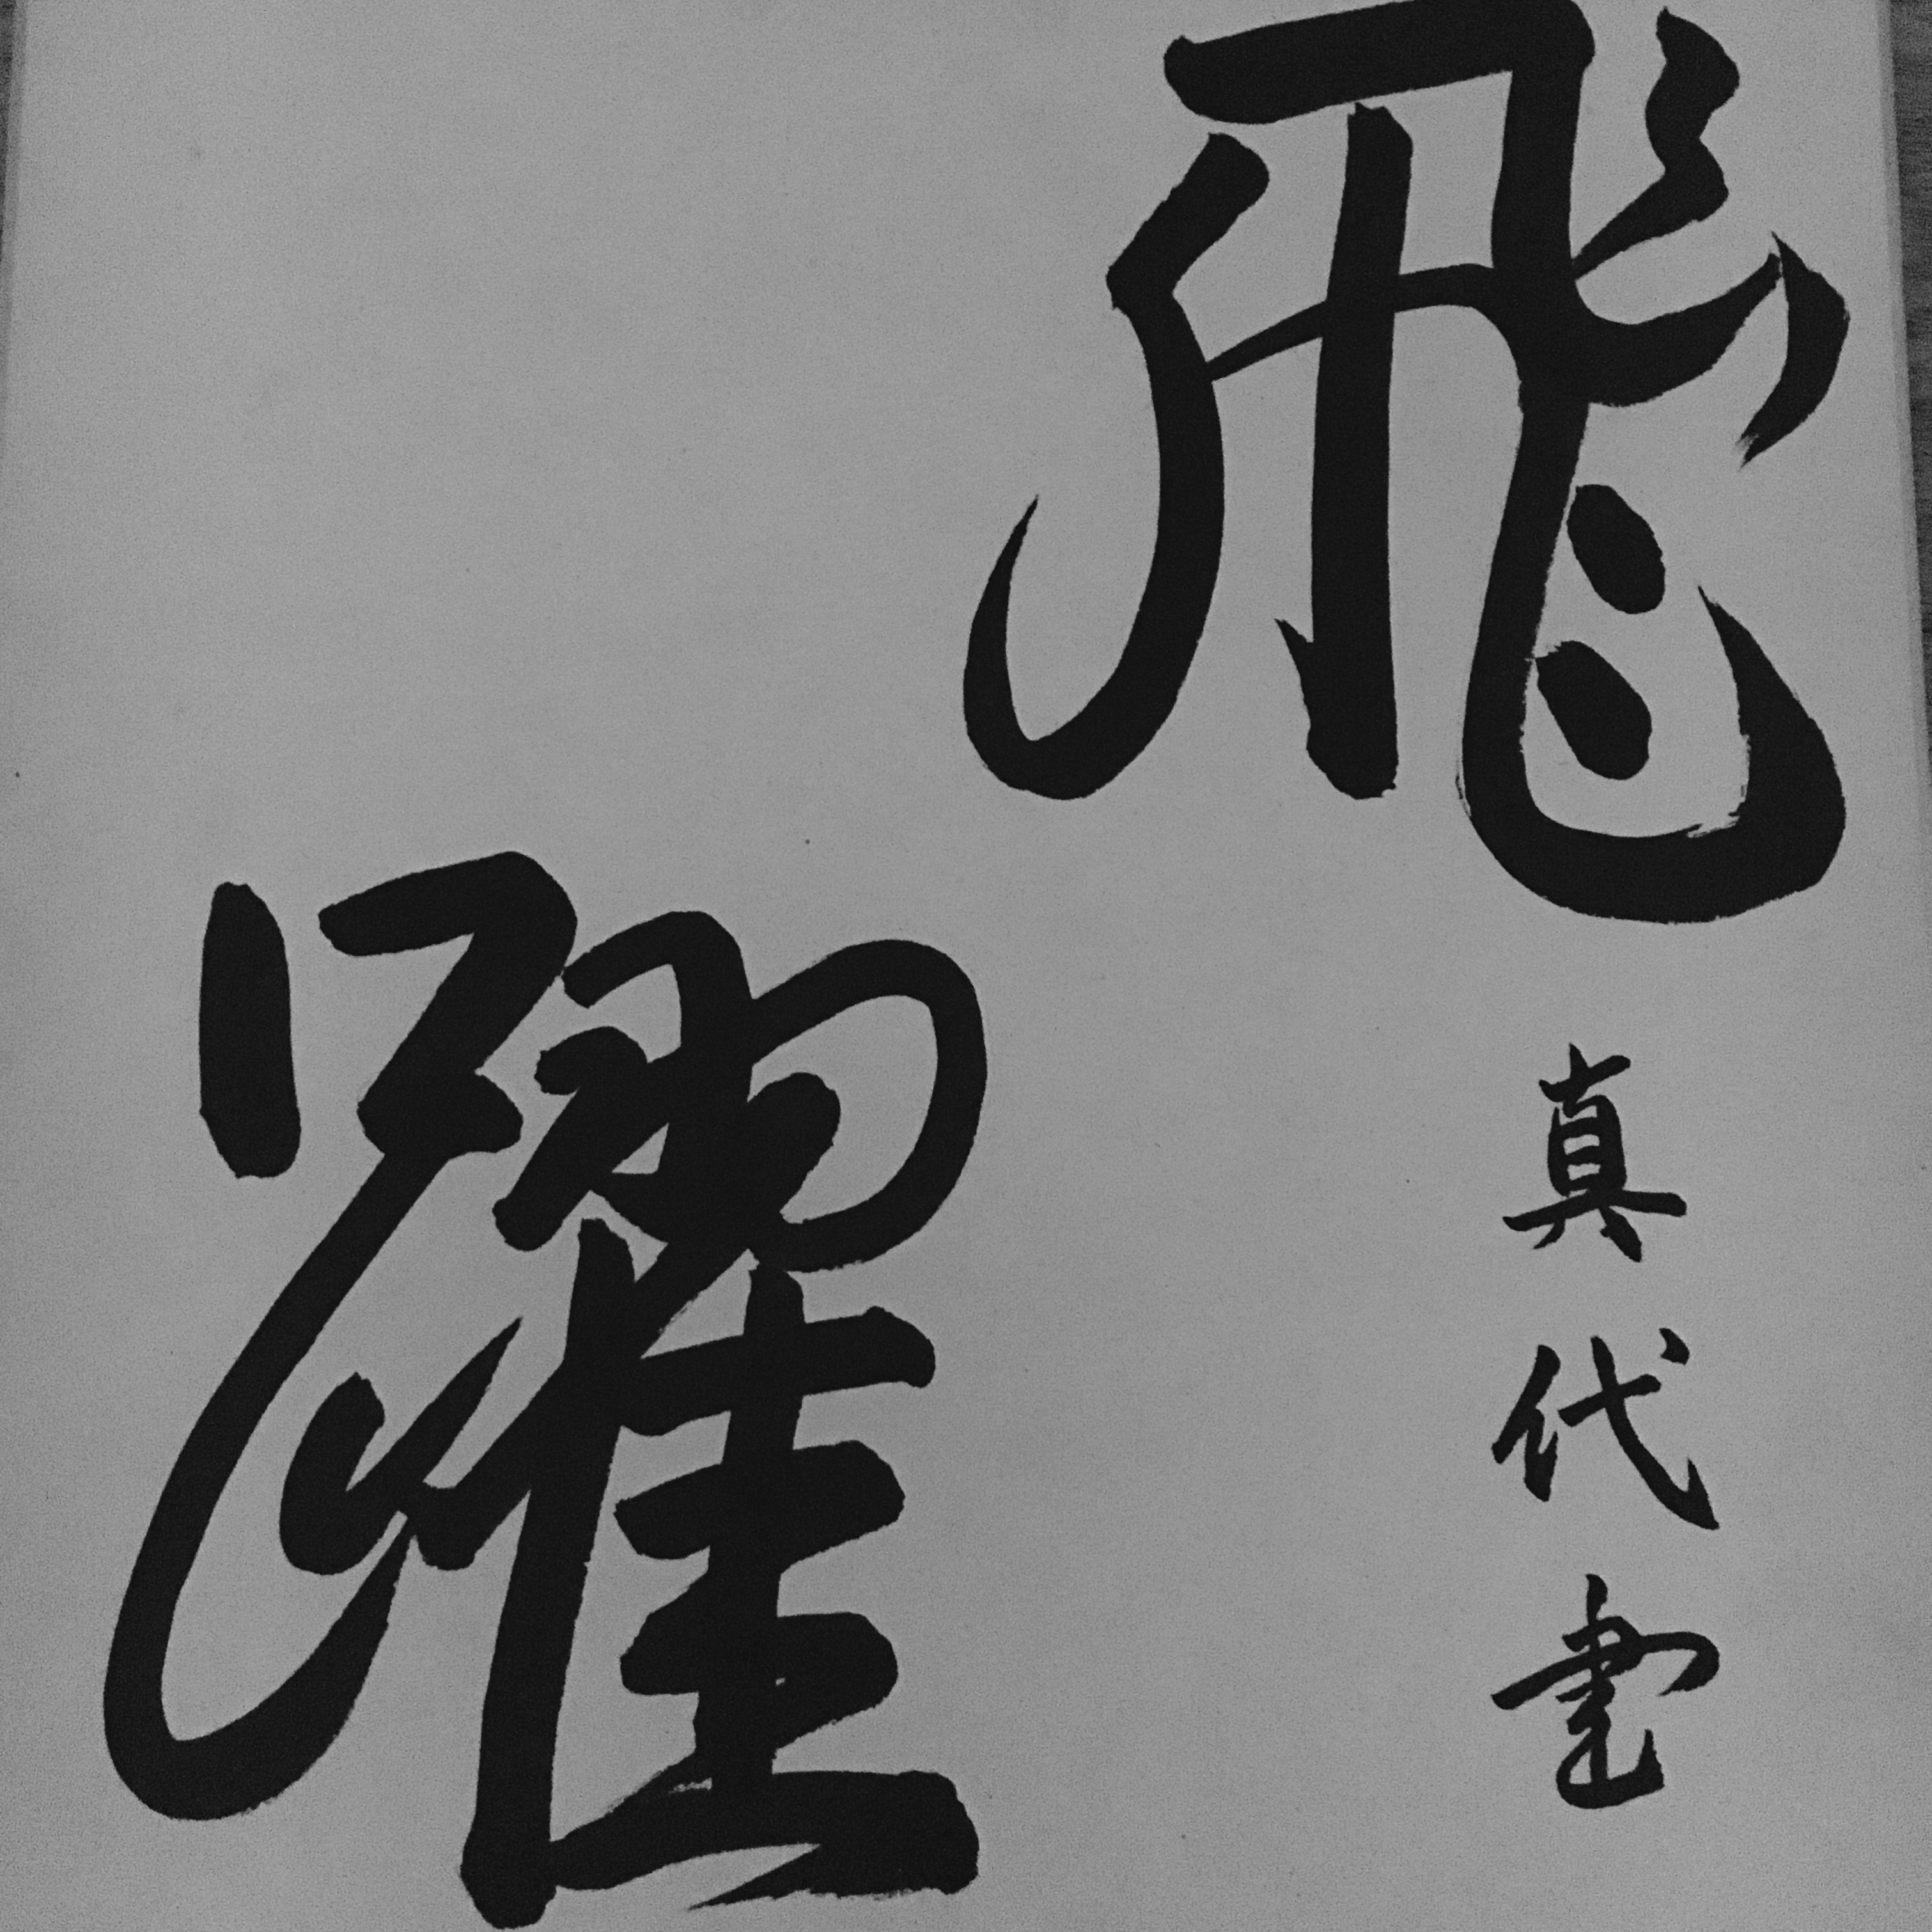 飛
躍
真代書